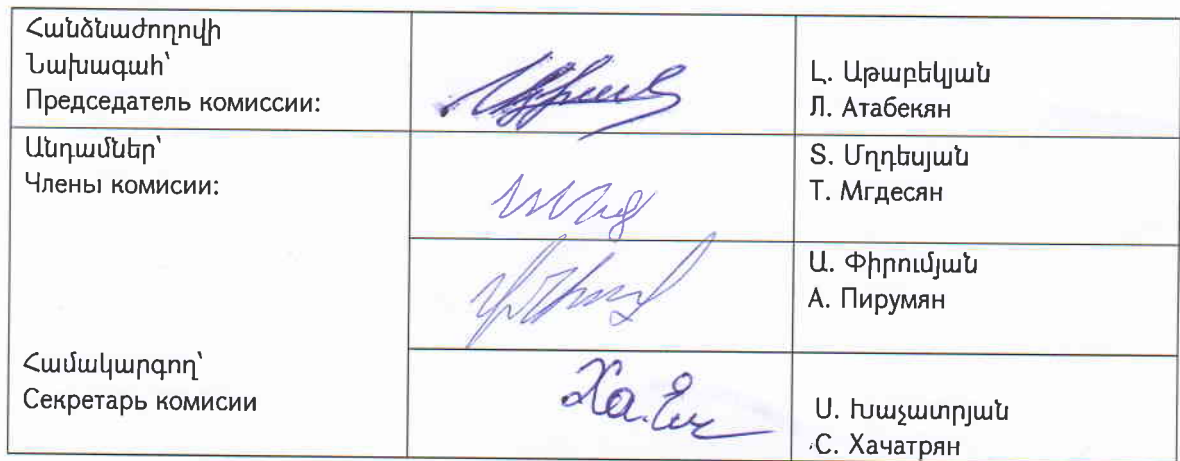 Հանձնաժողովի
Նախագահ՝
Председатель комиссии:
Լ. Աթաբեկյան
Л. Атабекян
Անդամներ՝
Члены комисии:
Տ. Մղդեսյան
Т. Мгдесян
Ա. Փիրումյան
А. Пирумян
Համակարգող՝
Секретарь комисии
Ս. Խաչատրյան
С. Хачатрян